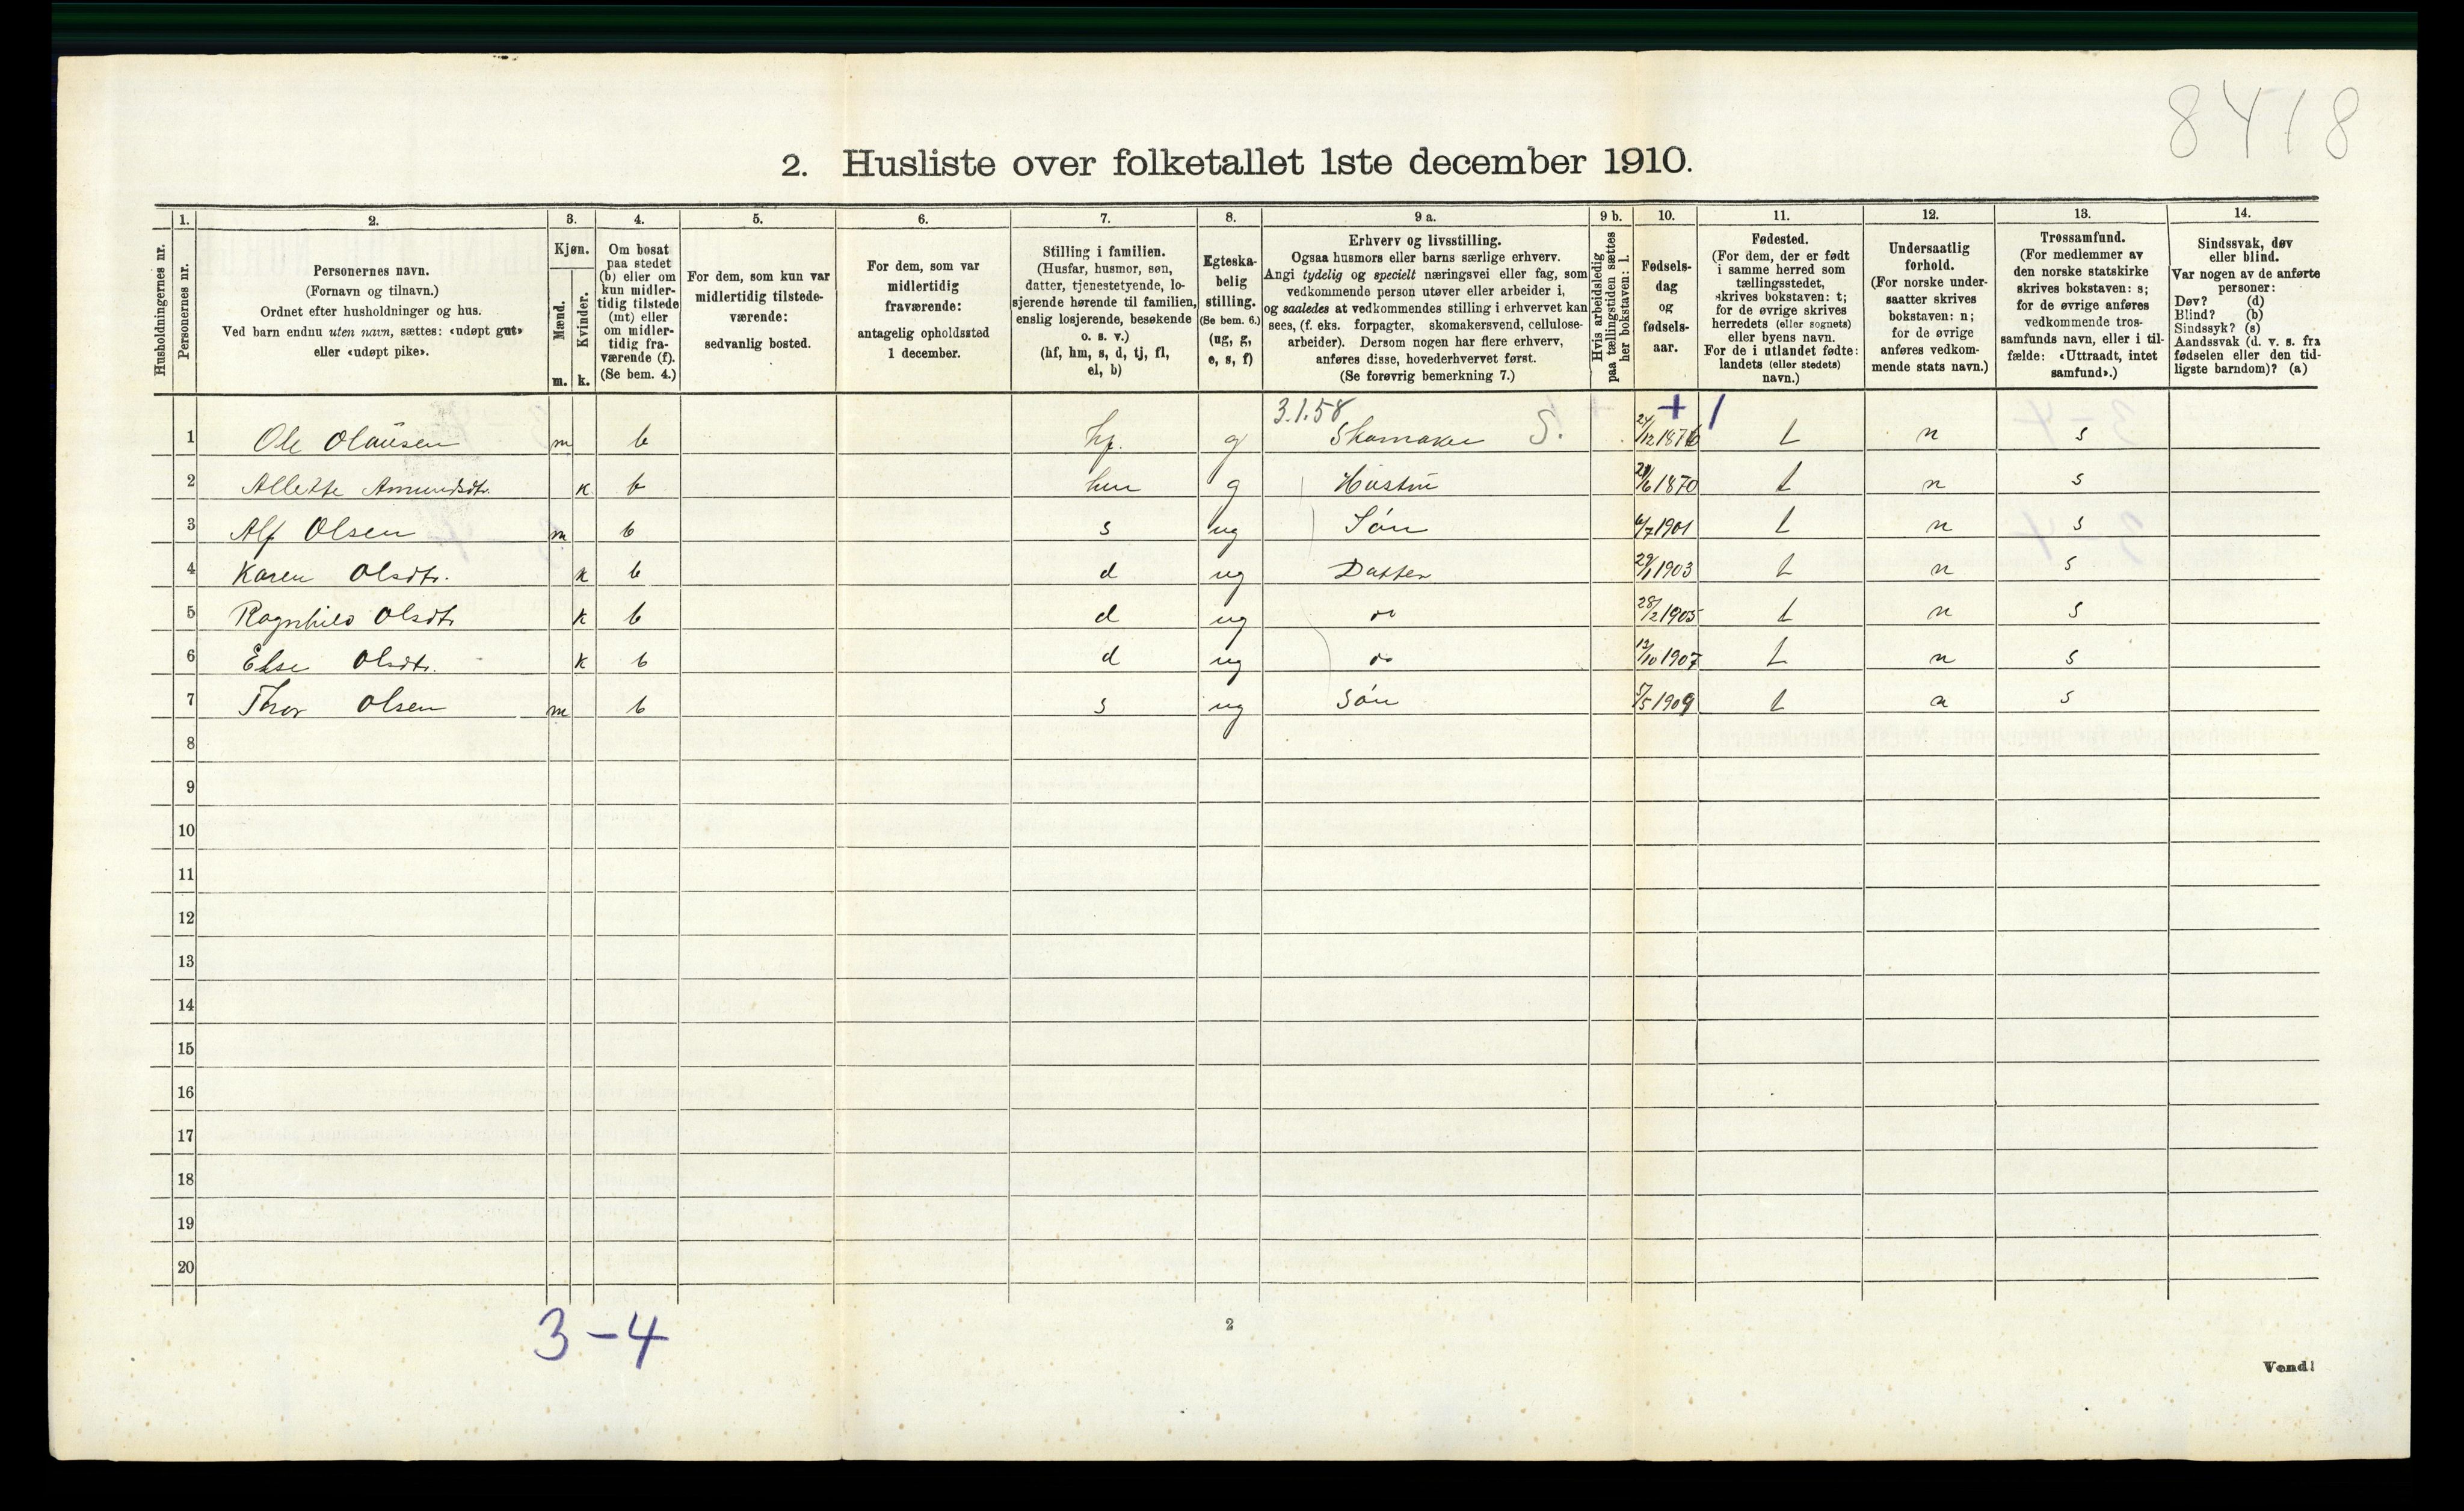 8418
2. Husliste over folketallet 1ste december 1910.
Husholdningernes nr.
1. Personernes nr.
2. Personernes navn.
(Fornavn og tilnavn.)
Ordnet efter husholdninger og hus.
Ved barn endnu uten navn, sættes: «udøpt gut»
eller «udøpt pike».
3. Kjøn.
Mænd. m.
Kvinder. k.
4. Om bosat
paa stedet
(b) eller om
kun midler-
tidig tilstede
(mt) eller
om midler-
tidig fra-
værende (f).
(Se bem. 4.)
5. For dem, som kun var
midlertidig tilstede-
værende:
sedvanlig bosted.
6. For dem, som var
midlertidig
fraværende:
antagelig opholdssted
1 december.
7. Stilling i familien.
(Husfar, husmor, søn,
datter, tjenestetyende, lo-
sjerende hørende til familien,
enslig losjerende, besøkende
o. s. v.)
(hf, hm, s, d, tj, fl,
el, b)
8. Egteska-
belig
stilling.
(Se bem. 6.)
(ug, g,
e, s, f)
9 a. Erhverv og livsstilling.
Ogsaa husmors eller barns særlige erhverv.
Angi tydelig og specielt næringsvei eller fag, som
vedkommende person utøver eller arbeider i,
og saaledes at vedkommendes stilling i erhvervet kan
sees, (f. eks. forpagter, skomakersvend, cellulose-
arbeider). Dersom nogen har flere erhverv,
anføres disse, hovederhvervet først.
(Se forøvrig bemerkning 7.)
9 b. Hvis arbeidsledig
paa tællingstiden sættes
her bokstaven: l.
10. Fødsels-
dag
og
fødsels-
aar.
11. Fødested.
(For dem, der er født
i samme herred som
tællingsstedet,
skrives bokstaven: t;
for de øvrige skrives
herredets (eller sognets)
eller byens navn.
For de i utlandet fødte:
landets (eller stedets)
navn.)
12. Undersaatlig
forhold.
(For norske under-
saatter skrives
bokstaven: n;
for de øvrige
anføres vedkom-
mende stats navn.)
13. Trossamfund.
(For medlemmer av
den norske statskirke
skrives bokstaven: s;
for de øvrige anføres
vedkommende tros-
samfunds navn, eller i til-
fælde: «Uttraadt, intet
samfund».)
14. Sindssvak, døv
eller blind.
Var nogen av de anførte
personer:
Døv? (d)
Blind? (b)
Sindssyk? (s)
Aandssvak (d. v. s. fra
fødselen eller den tid-
ligste barndom)? (a)
3.1.58 + 1
1 Ole Olausen m b hf. g Skomaker S. 24/12 1876 t n s
2 Allette Amundsdtr. k b hm g Hustru 6 1870 t n s
3 Alf Olsen m b s ug Søn 6/7 1901 t n s
4 Karen Olsdtr. k b d ug Datter 29/1 1903 t n s
5 Ragnhild Olsdtr k b d ug do 28/2 1905 t n s
6 Else Olsdtr. k b d ug do 12/10 1907 t n s
7 Thor Olsen m b s ug Søn 5/5 1909 t n s
8
9
10
11
12
13
14
15
16
17
18
19
20
3-4
2
Vend!